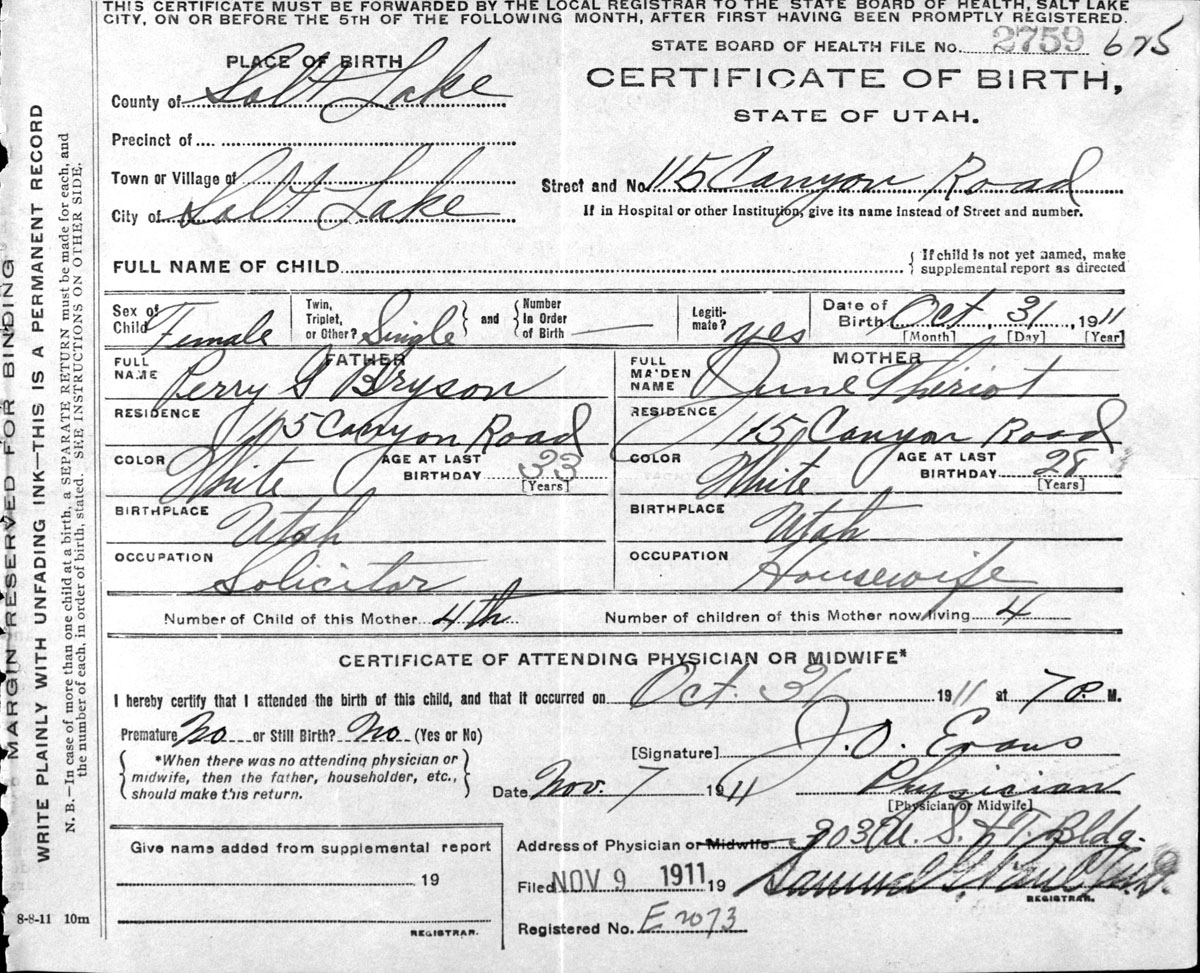 THIS CERTIFICATE MUST BE FORWARDED BY THE LOCAL REGISTRAR TO THE STATE BOARD OF HEALTH, SALT LAKE
CITY, ON OR BEFORE THE 5TH OF THE FOLLOWING MONTH, AFTER FIRST HAVING BEEN PROMPTLY REGISTERED.
STATE BOARD OF HEALTH FILE No. 2759 675
PLACE OF BIRTH
CERTIFICATE OF BIRTH,
STATE OF UTAH.
County of Salt Lake
Precinct of
Town or Village of
Street and No 115 Canyon Road
City of Salt Lake
If in Hospital or other Institution, give its name instead of Street and number.
FULL NAME OF CHILD
{ If child is not yet named, make
supplemental report as directed
Sex of
Child Female
Twin,
Triplet,
or Other? Single } and { Number
in Order
of Birth —
Legiti-
mate? yes
Date of
Birth Oct, 31, 1911
[Month] [Day] [Year]
FATHER
FULL
NAME Perry G Bryson
MOTHER
FULL
MA'DEN
NAME June Theriot
RESIDENCE 115 Canyon Road
RESIDENCE 115 Canyon Road
COLOR White AGE AT LAST
BIRTHDAY 33
[Years]
COLOR White AGE AT LAST
BIRTHDAY 28
[Years]
BIRTHPLACE Utah
BIRTHPLACE Utah
OCCUPATION Solicitor
OCCUPATION Housewife
Number of Child of this Mother 4th Number of children of this Mother now living 4
CERTIFICATE OF ATTENDING PHYSICIAN OR MIDWIFE*
I hereby certify that I attended the birth of this child, and that it occurred on Oct. 31 1911 at 7 P. M.
Premature No or Still Birth? No (Yes or No)
{ *When there was no attending physician or
midwife, then the father, householder, etc.,
should make this return. }
[Signature] J. O. Evans
Date Nov. 7 1911 Physician
[Physician or Midwife]
Address of Physician or Midwife 303 U. S. & T. Bldg.
Give name added from supplemental report
19
REGISTRAR.
Filed NOV 9 1911 19 Samuel G.
REGISTRAR.
Registered No. E 2073
8-8-11 10m
MARGIN RESERVED FOR BINDING
WRITE PLAINLY WITH UNFADING INK—THIS IS A PERMANENT RECORD
N. B.—In case of more than one child at a birth, a SEPARATE RETURN must be made for each, and
the number of each, in order of birth, stated. SEE INSTRUCTIONS ON OTHER SIDE.